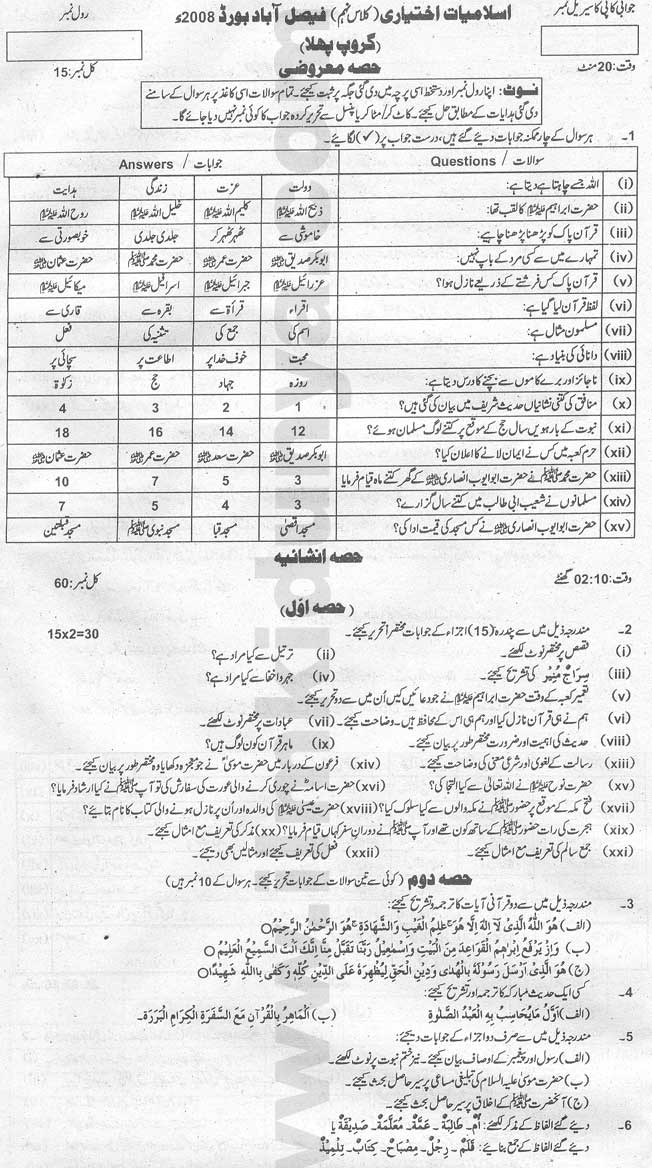 جوابی کاپی کا سیریل نمبر
اسلامیات اختیاری (کلاس نہم) فیصل آباد بورڈ 2008ء
رول نمبر
گروپ پہلا
وقت: 20 منٹ
حصہ معروضی
کل نمبر: 15
نوٹ: اپنا رول نمبر اور دستخط اسی پرچہ میں دی گئی جگہ پر ثبت کیجئے۔ تمام سوالات اسی کاغذ پر ہر سوال کے سامنے
دی گئی ہدایات کے مطابق حل کیجئے۔ کاٹ کر/مٹا کر یا پنسل سے تحریر کردہ جواب کا کوئی نمبر نہیں دیا جائے گا۔
1۔ ہر سوال کے چار ممکنہ جوابات دیئے گئے ہیں، درست جواب پر (✓) لگائیے۔
سوالات / Questions جوابات / Answers
(i) اللہ جسے چاہتا ہے دیتا ہے: دولت عزت زندگی ہدایت
(ii) حضرت ابراہیم علیہ السلام کا لقب تھا: ذبیح اللہ علیہ السلام کلیم اللہ علیہ السلام خلیل اللہ علیہ السلام روح اللہ علیہ السلام
(iii) قرآن پاک کو پڑھنا پڑھنا چاہیے: خاموشی سے ٹھہر ٹھہر کر جلدی جلدی خوبصورتی سے
(iv) تمہارے میں سے کسی مرد کے باپ نہیں: ابوبکر صدیق رضی اللہ عنہ حضرت عمر رضی اللہ عنہ حضرت محمد ﷺ حضرت عثمان رضی اللہ عنہ
(v) قرآن پاک کس فرشتے کے ذریعے نازل ہوا؟ عزرائیل علیہ السلام جبرائیل علیہ السلام اسرافیل علیہ السلام میکائیل علیہ السلام
(vi) لفظ قرآن لیا گیا ہے: اقراء قرأۃ سے بقرہ سے قاری سے
(vii) مسلمون مثال ہے: اسم کی جمع کی تثنیہ کی فعل
(viii) دانائی کی بنیاد ہے: محبت خوف خدا پر اطاعت پر سچائی پر
(ix) ناجائز اور برے کاموں سے بچنے کا درس دیتا ہے: روزہ جہاد حج زکوٰۃ
(x) منافق کی کتنی نشانیاں حدیث شریف میں بیان کی گئی ہیں؟ 1 2 3 4
(xi) نبوت کے بارہویں سال حج کے موقع پر کتنے لوگ مسلمان ہوئے؟ 12 14 16 18
(xii) حرم کعبہ میں کس نے ایمان لانے کا اعلان کیا؟ ابوبکر صدیق رضی اللہ عنہ حضرت سعد رضی اللہ عنہ حضرت عمر رضی اللہ عنہ حضرت عثمان رضی اللہ عنہ
(xiii) حضرت محمد ﷺ نے حضرت ابو ایوب انصاری رضی اللہ عنہ کے گھر کتنے ماہ قیام فرمایا 3 5 7 10
(xiv) مسلمانوں نے شعیب ابی طالب میں کتنے سال گزارے؟ 3 4 5 7
(xv) حضرت ابو ایوب انصاری رضی اللہ عنہ نے کس مسجد کی قیمت ادا کی؟ مسجد اقصیٰ مسجد قبا مسجد نبوی ﷺ مسجد قبلتین
حصہ انشائیہ
وقت: 02:10 گھنٹے
کل نمبر: 60
(حصہ اوّل)
2۔ مندرجہ ذیل میں سے پندرہ (15) اجزاء کے جوابات مختصراً تحریر کیجئے۔ 15x2=30
(i) قصص پر مختصر نوٹ لکھئے۔ (ii) ترتیل سے کیا مراد ہے؟
(iii) سِرَاجٌ مُنِیْر کی تشریح کیجئے۔ (iv) جہر و اخفا سے کیا مراد ہے؟
(v) تعمیر کعبہ کے وقت حضرت ابراہیم علیہ السلام نے جو دعائیں کیں اُن میں سے دو تحریر کیجئے۔
(vi) ہم نے ہی قرآن نازل کیا اور ہم ہی اس کے محافظ ہیں۔ وضاحت کیجئے۔ (vii) عبادات پر مختصر نوٹ لکھئے۔
(viii) حدیث کی اہمیت اور ضرورت مختصر طور پر بیان کیجئے۔ (ix) ماہر قرآن کون لوگ ہیں؟
(xiii) رسالت کے لغوی اور شرعی معنی کی وضاحت کیجئے۔ (xiv) فرعون کے دربار میں حضرت موسیٰؑ نے جو معجزہ دکھایا وہ مختصر طور پر بیان کیجئے۔
(xv) حضرت نوح علیہ السلام نے اللہ تعالیٰ سے کیا التجا کی؟ (xvi) حضرت اسامہؓ نے چوری کرنے والی عورت کی سفارش کی تو آپ ﷺ نے کیا ارشاد فرمایا؟
(xvii) فتح مکہ کے موقع پر حضور ﷺ نے مکہ والوں سے کیا سلوک کیا؟ (xviii) حضرت عیسیٰ علیہ السلام کی والدہ اور اُن پر نازل ہونے والی کتاب کا نام بتائیے؟
(xix) ہجرت کی رات حضور ﷺ کے ساتھ کون تھے اور آپ ﷺ نے دوران سفر کہاں قیام فرمایا؟ (xx) مذکر کی تعریف مع امثال کیجئے۔
(xxi) جمع سالم کی تعریف مع امثال کیجئے۔ (xxii) فعل کی تعریف کیجئے اور مثالیں بھی دیجئے۔
حصہ دوم (کوئی سے تین سوالات کے جوابات تحریر کیجئے۔ ہر سوال کے 10 نمبر ہیں)
3۔ مندرجہ ذیل میں سے دو قرآنی آیات کا ترجمہ و تشریح کیجئے:
(الف) هُوَ اللّٰهُ الَّذِیْ لَا اِلٰهَ اِلَّا هُوَ عٰلِمُ الْغَیْبِ وَالشَّهَادَةِ هُوَ الرَّحْمٰنُ الرَّحِیْمُ
(ب) وَاِذْ یَرْفَعُ اِبْرٰهِمُ الْقَوَاعِدَ مِنَ الْبَیْتِ وَاِسْمٰعِیْلُ رَبَّنَا تَقَبَّلْ مِنَّا اِنَّكَ اَنْتَ السَّمِیْعُ الْعَلِیْمُ
(ج) هُوَ الَّذِیْ اَرْسَلَ رَسُوْلَهٗ بِالْهُدٰی وَدِیْنِ الْحَقِّ لِیُظْهِرَهٗ عَلَی الدِّیْنِ كُلِّهٖ وَكَفٰی بِاللّٰهِ شَهِیْدًا
4۔ کسی ایک حدیث مبارکہ کا ترجمہ اور تشریح کیجئے:
(الف) اَوَّلُ مَا یُحَاسَبُ بِهِ الْعَبْدُ الصَّلٰوةُ (ب) اَلْمَاهِرُ بِالْقُرْآنِ مَعَ السَّفَرَةِ الْكِرَامِ الْبَرَرَةِ۔
5۔ مندرجہ ذیل میں سے صرف دو اجزاء کے جوابات دیجئے:
(الف) رسول اور پیغمبر کے اوصاف بیان کیجئے۔ نیز ختم نبوت پر نوٹ لکھئے۔
(ب) حضرت موسیٰ علیہ السلام کی تبلیغی مساعی پر سیر حاصل بحث کیجئے۔
(ج) آنحضرت ﷺ کے اخلاق پر سیر حاصل بحث کیجئے۔
6۔ دیے گئے الفاظ کے مذکر لکھئے: اُمٌّ۔ طَالِبَةٌ۔ عَمَّةٌ۔ مُعَلِّمَةٌ۔ صَدِیْقَةٌ یا
دیے گئے الفاظ کے جمع بنائیے: قَلَمٌ۔ رَجُلٌ۔ مِصْبَاحٌ۔ كِتَابٌ۔ تِلْمِیْذٌ